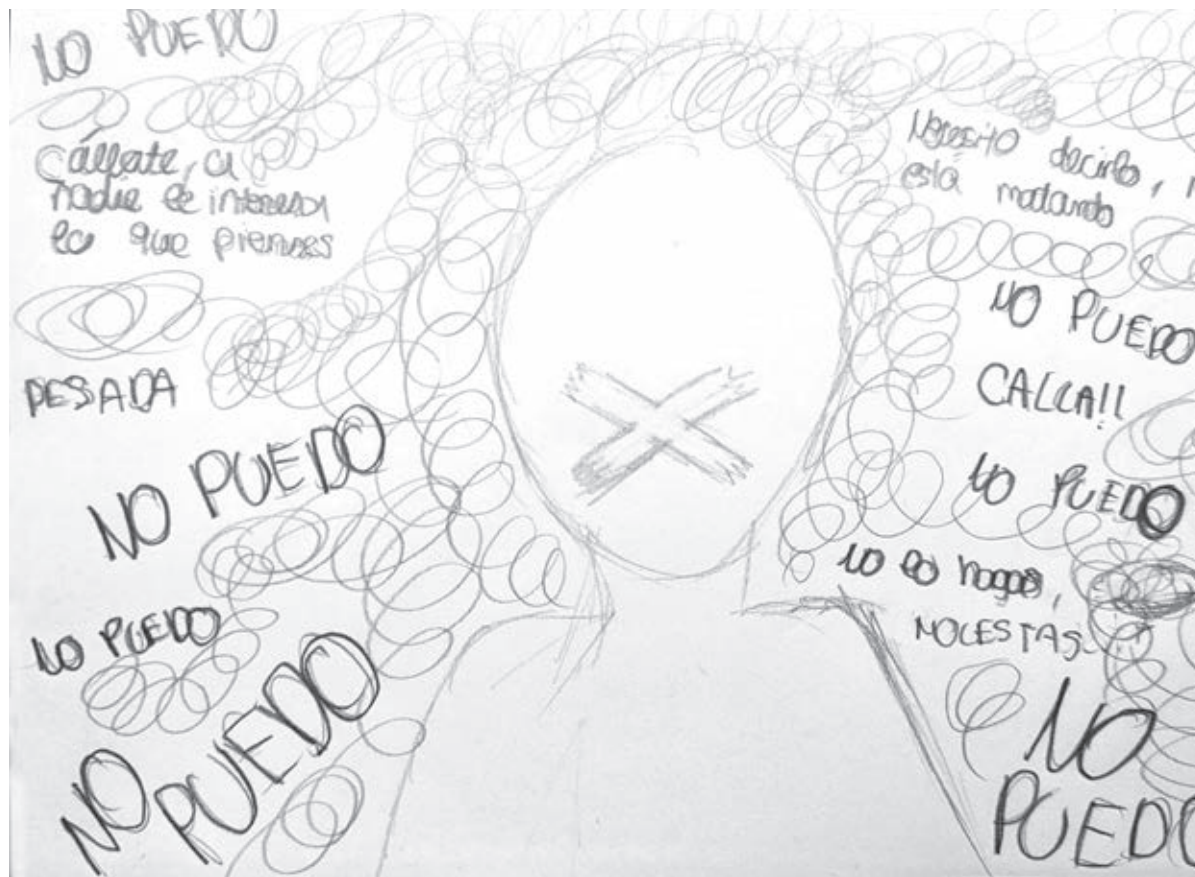 NO PUEDO
Cállate, a
nadie le interesa
lo que pienses
PESADA
NO PUEDO
NO PUEDO
NO
PUEDO
Necesito decirlo,
está matando
NO PUEDO
CALLA!!
NO PUEDO
NO lo hagas,
MOLESTAS
NO
PUEDO